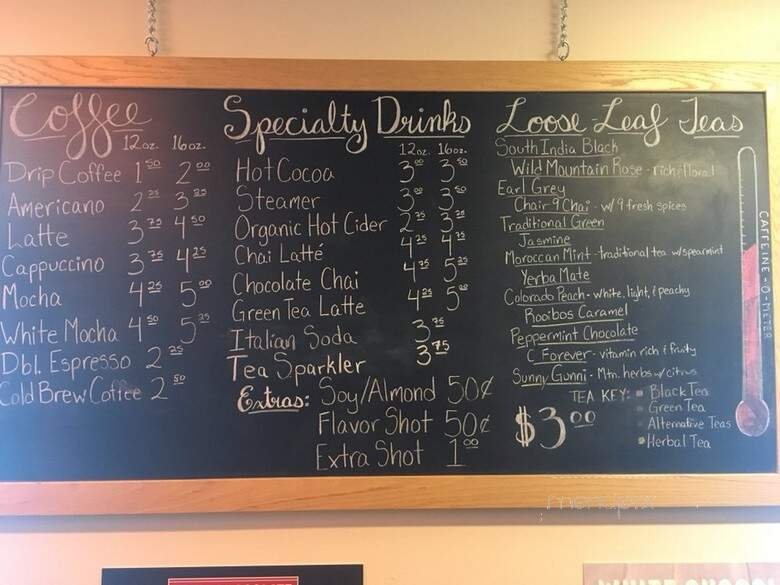 Coffee
12oz. 16oz.
Drip Coffee 1 50 2 00
Americano 2 25 3 25
Latte 3 75 4 50
Cappuccino 3 75 4 25
Mocha 4 25 5 00
White Mocha 4 50 5 25
Dbl. Espresso 2 25
Cold Brew Coffee 2 50
Specialty Drinks
12oz. 16oz.
Hot Cocoa 3 00 3 50
Steamer 3 00 3 50
Organic Hot Cider 2 75 3 25
Chai Latté 4 25 4 75
Chocolate Chai 4 75 5 25
Green Tea Latte 4 25 5 00
Italian Soda 3 75
Tea Sparkler 3 75
Extras: Soy/Almond 50¢
Flavor Shot 50¢
Extra Shot 1 00
Loose-Leaf Teas
South India Black
Wild Mountain Rose - rich, floral
Earl Grey
Chair 9 Chai - w/ 9 fresh spices
Traditional Green
Jasmine
Moroccan Mint - traditional tea w/spearmint
Yerba Mate
Colorado Peach - white, light, & peachy
Rooibos Caramel
Peppermint Chocolate
C Forever - vitamin rich & fruity
Sunny Gunni - Mtn. herbs w/citrus
$3 00
TEA KEY: Black Tea
Green Tea
Alternative Teas
Herbal Tea
CAFFEINE-O-METER